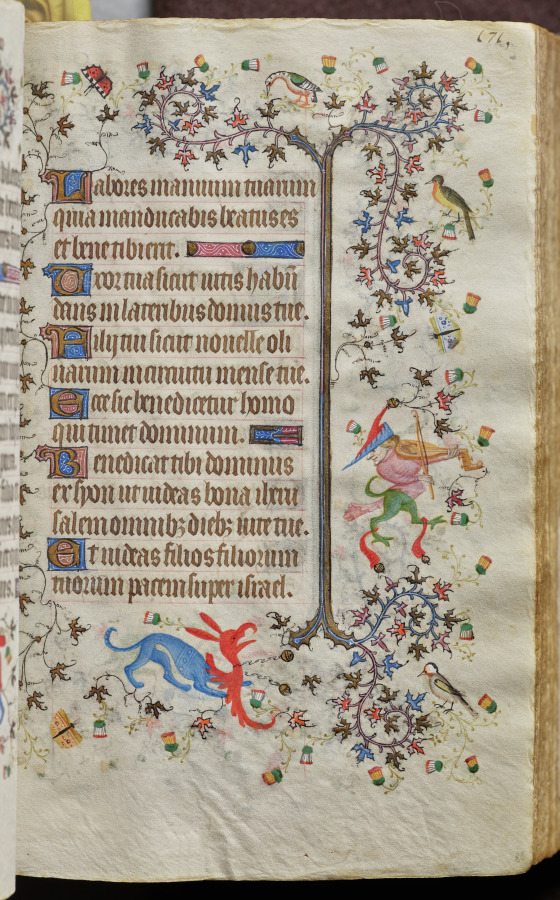 676
Labores manuum tuarum
quia manducabis beatus es
et bene tibi erit.
Uxor tua sicut vitis habū
dans in lateribus domus tue.
Filij tui sicut novelle oli
uarum in circuitu mense tue.
Ecce sic benedicetur homo
qui timet dominum.
Benedicat tibi dominus
ex syon ut uideas bona iheru
salem omnibꝫ diebꝫ uite tue.
Et uideas filios filiorum
tuorum pacem super israel.